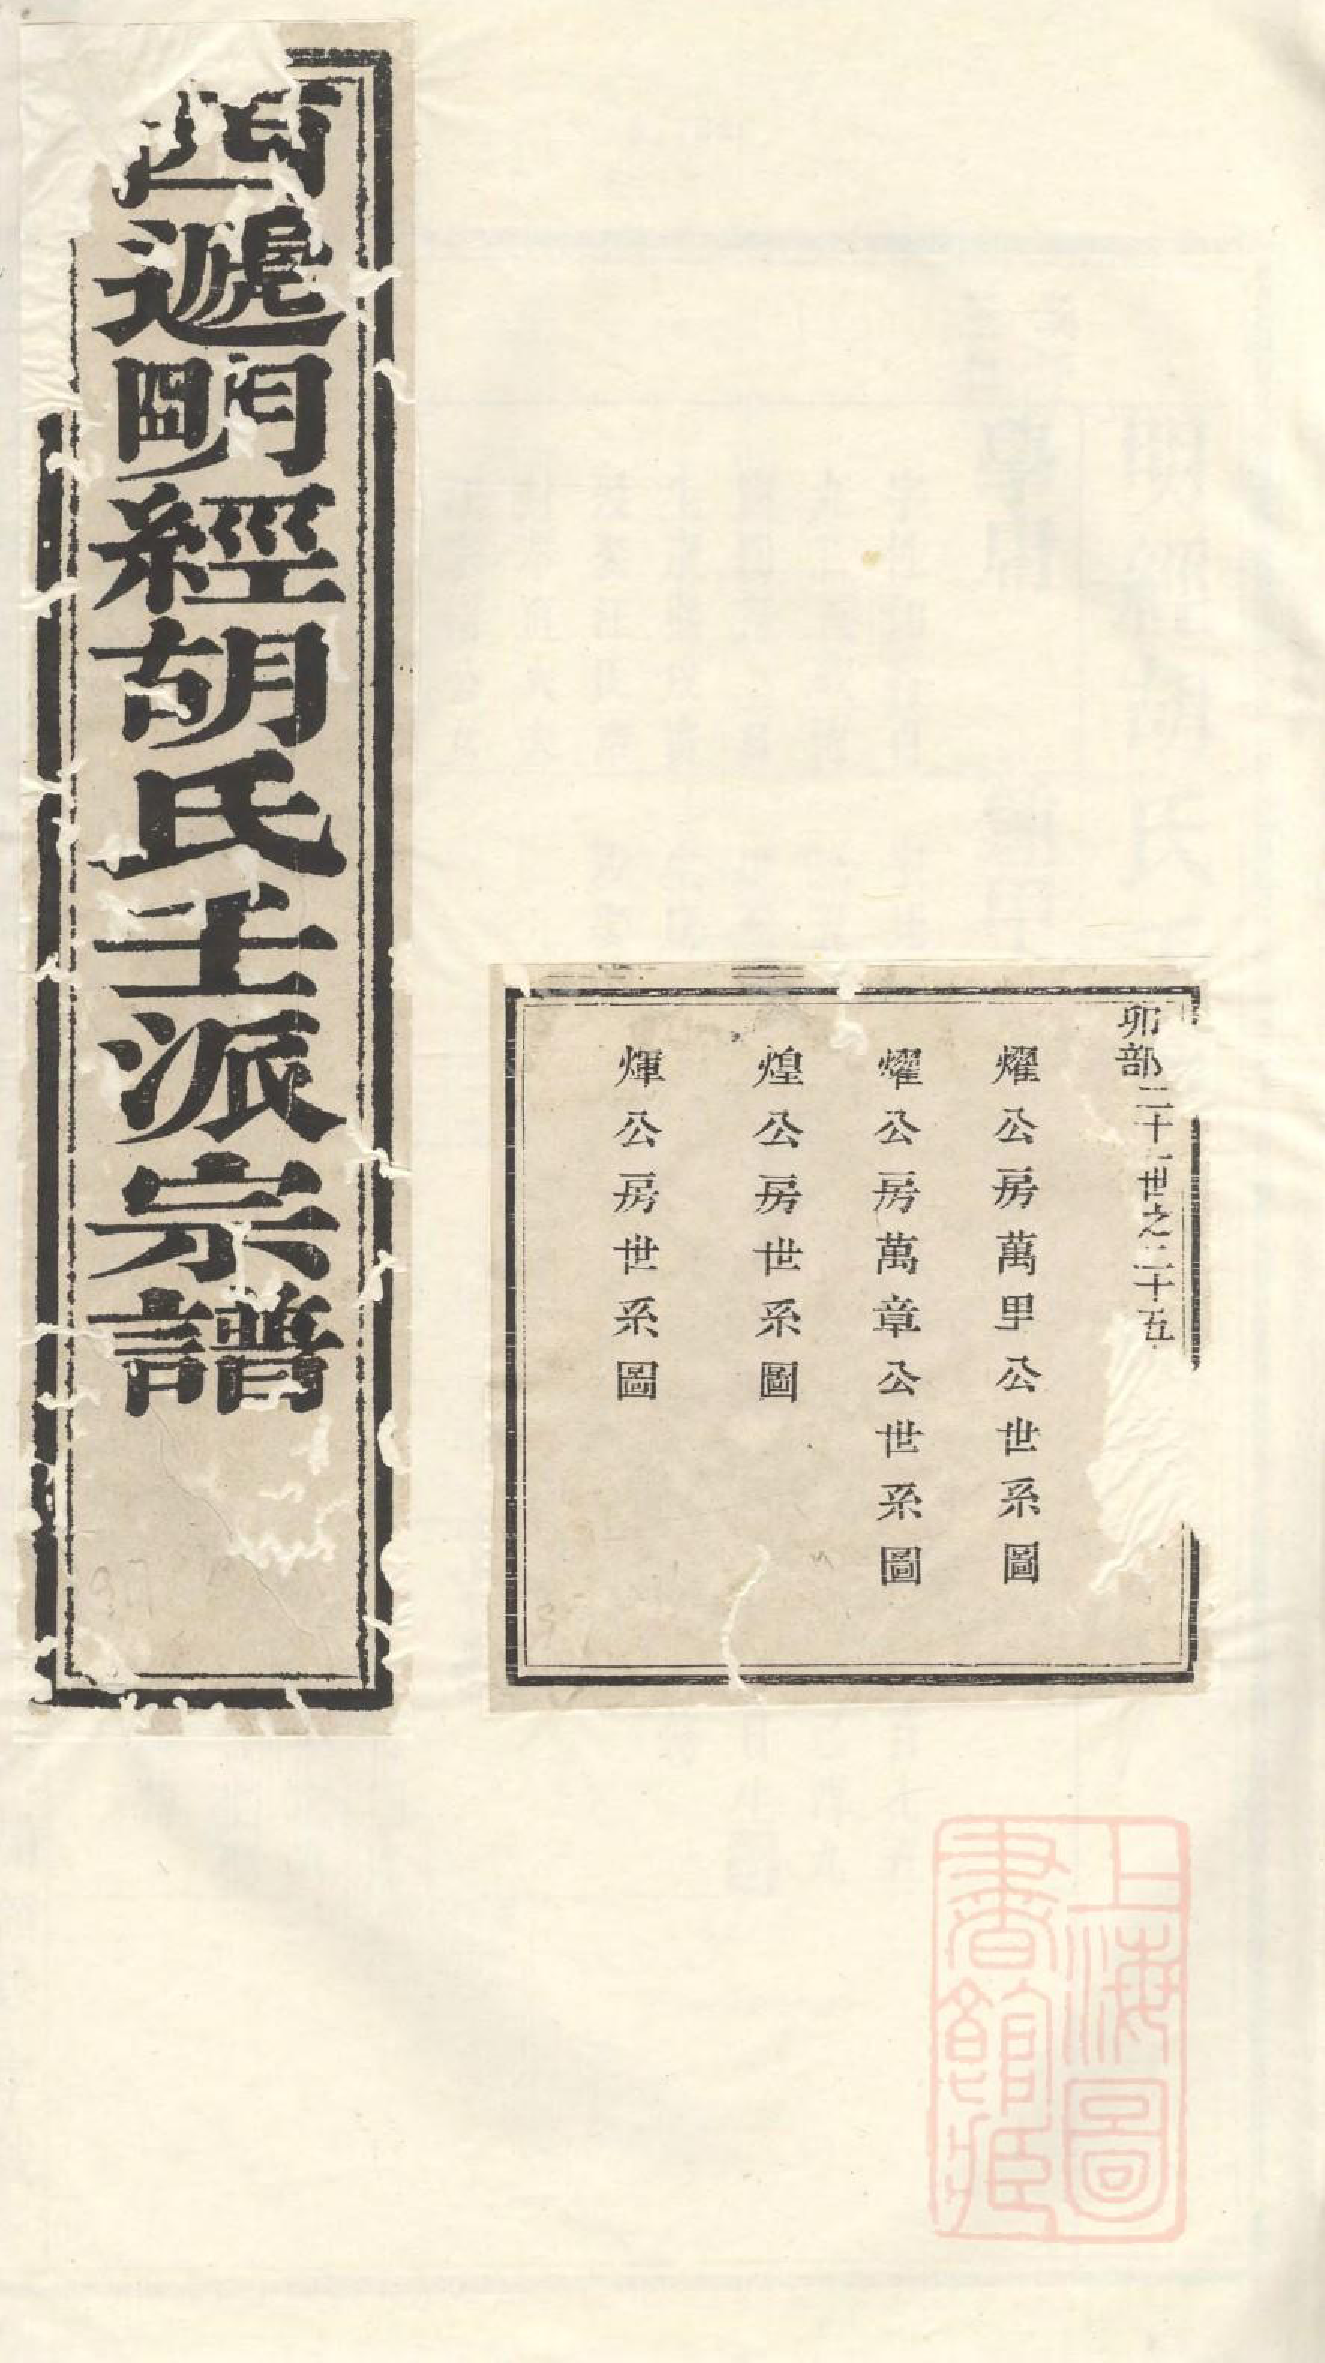 西遞明經胡氏壬派宗譜
卯部二十一世之二十五
燿公房萬里公世系圖
燿公房萬章公世系圖
煌公房世系圖
煇公房世系圖
上海圖
書館藏